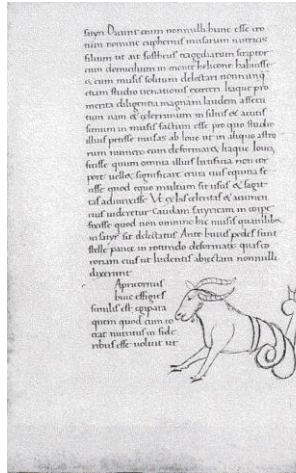 satyri Dicunt enim nonnulli hunc esse cro
tum nomine euphemes musarum nutricis
filium ut ait sositheus tragediarum scriptor
eum domicilium in monte helicone habuisse
&, cum musis solitum delectari nonnunq
etiam studio uenationis exerceri Itaque pro
merita diligentia magnam laudem assecu
tum nam & celerrimum in siluis & acutis
simum in musis factum esse pro quo studio
illius petisse musas ab Ioue ut in aliquo astro
rum numero eum deformaret, Itaque Iouem
fecisse quum omnia illius artificia uno cor
pore uellet significare crura eius equina fe
cisse quod equo multum sit usus & sagit
tas adiunxisse Ut ex his celeritas & acumen
eius uideretur Caudam satyricam in corpore
fecisse quod non minus hoc musis quam liber
in satyris sit delectatus Ante huius pedes sunt
stelle pauce in rotundo deformate quas co
ronam eius ut ludentis abiectam nonnulli
dixerunt
Apricornus
huic effigies
similis est egipani
quem quod cum io
erat nutritus in side
ribus esse uoluit ut